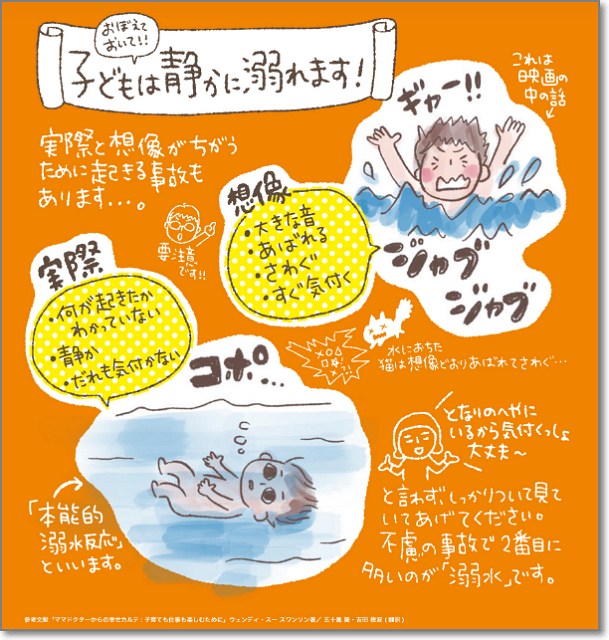 おぼえて
おいて!!
子どもは静かに溺れます!
これは
映画の
中の話
ギャー!!
実際と想像がちがう
ために起きる事故も
あります...。
要注意
です!!
想像
・大きな音
・あばれる
・さわぐ
・すぐ気付く
ジャブ
ジャブ
実際
・何が起きたか
わかっていない
・静か
・だれも気付かない
コポ...
水におちた
猫は想像どおりあばれてさわぐ...
となりのへやに
いるから気付くっしょ
大丈夫～
と言わず、しっかりついて見て
いてあげてください。
不慮の事故で2番目に
多いのが「溺水」です。
「本能的
溺水反応」
といいます。
参考文献「ママドクターからの幸せカルテ:子育ても仕事も楽しむために」ウェンディ・スー スワンソン著／五十嵐 隆・吉田 穂波(翻訳)